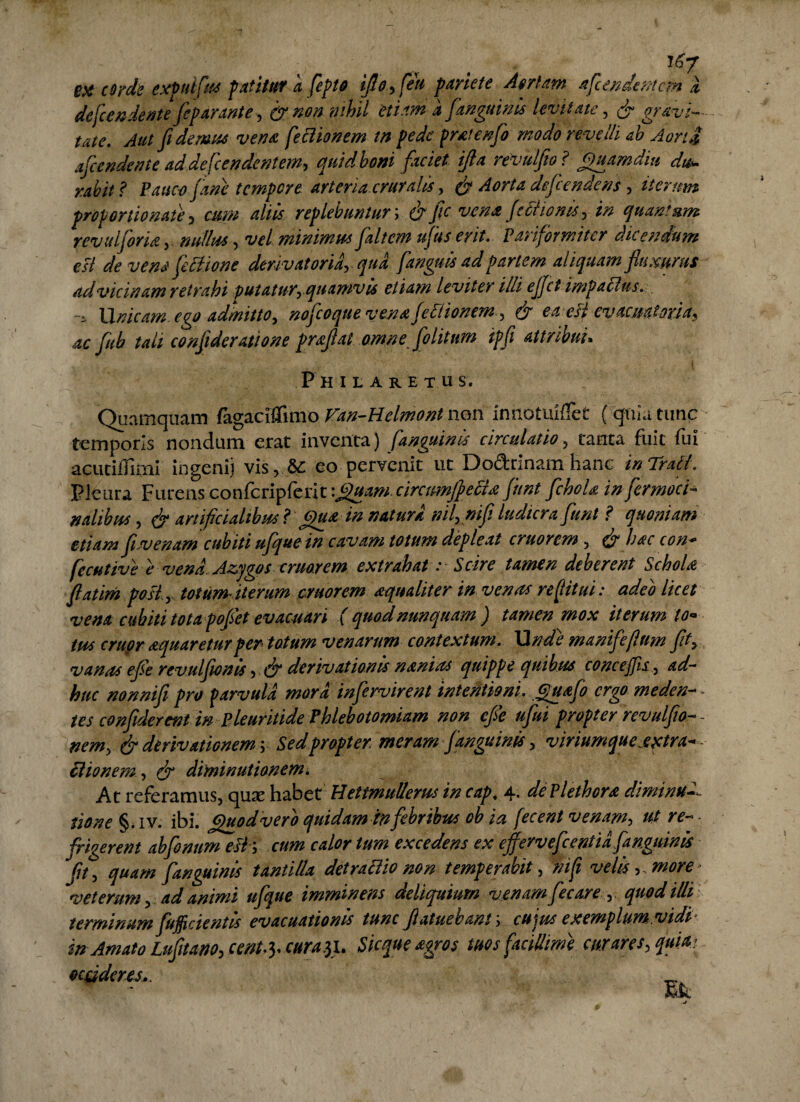 167
ex corde expulsus patitur à septo isto, seu pariete Aortam ascendentem à
descendente separante, & non nihil etiam à sanguinis levitate, & gravi-
tate. Aut si demus venæ sectionem in pede prætenso modo revelli ab Aortâ
ascendente ad descendentem, quid boni faciet ista revulsio? Quamdiu du-
rabit? Pauco sanè tempore arteria cruralis, & Aorta descendens, iterum
proportionatè, cum aliis replebuntur; & sic venæ sectionis, in quantum
revulsoriæ, nullus, vel minimus saltem usus erit. Pariformiter dicendum
est de venâ sectione derivatoriâ, quâ sanguis ad partem aliquam fluxurus
ad vicinam retrahi putatur, quamvis etiam leviter illi esset impactus.
Unicam ego admitto, noscoque venæ sectionem, & ea est evacuatoria,
ac sub tali consideratione præstat omne solitum ipsi attribui.
PHILARETUS.
Quamquam sagacissimo Van-Helmont non innotuisset (quia tunc
temporis nondum erat inventa) sanguinis circulatio, tanta fuit sui
acutissimi ingenij vis, & eo pervenit ut Doctrinam hanc in Tract.
Pleura Furens conscripserit: Quam circumspecta sunt schola in sermoci-
nalibus, & artificialibus? Quæ in naturâ nil, nisi ludicra sunt? quoniam
etiam si venam cubiti usque in cavam totum depleat cruorem, & hac con-
secutivè è venâ Azygos cruorem extrahat: Scire tamen deberent Scholæ
statim post, totum iterum cruorem æqualiter in venas restitui: adeò licet
vena cubiti tota posset evacuari (quod nunquam) tamen mox iterum to-
tus cruor æquaretur per totum venarum contextum. Unde manifestum fit,
vanas esse revulsionis, & derivationis nænias quippe quibus concessis, ad-
huc nonnisi pro parvulâ morâ inservirent intentioni. Quæso ergo meden-
tes considerent in Pleuritide Phlebotomiam non esse usui propter revulsio-
nem, & derivationem; Sed propter meram sanguinis, viriumque extra-
ctionem, & diminutionem.
At referamus, quæ habet Hettmullerus in cap. 4. de Plethora diminu-
tione §. IV. ibi. Quod verò quidam in febribus ob ia secent venam, ut re-
frigerent absonum est; cum calor tum excedens ex effervescentiâ sanguinis
fit, quam sanguinis tantilla detractio non temperabit, nisi velis, more
veterum, ad animi usque imminens deliquium venam secare, quod illi
terminum sufficientis evacuationis tunc statuebant; cujus exemplum vidi
in Amato Lusitano, cent. 3. cura 31. Sicque ægros tuos facillimè curares, quia
occideres.
Et